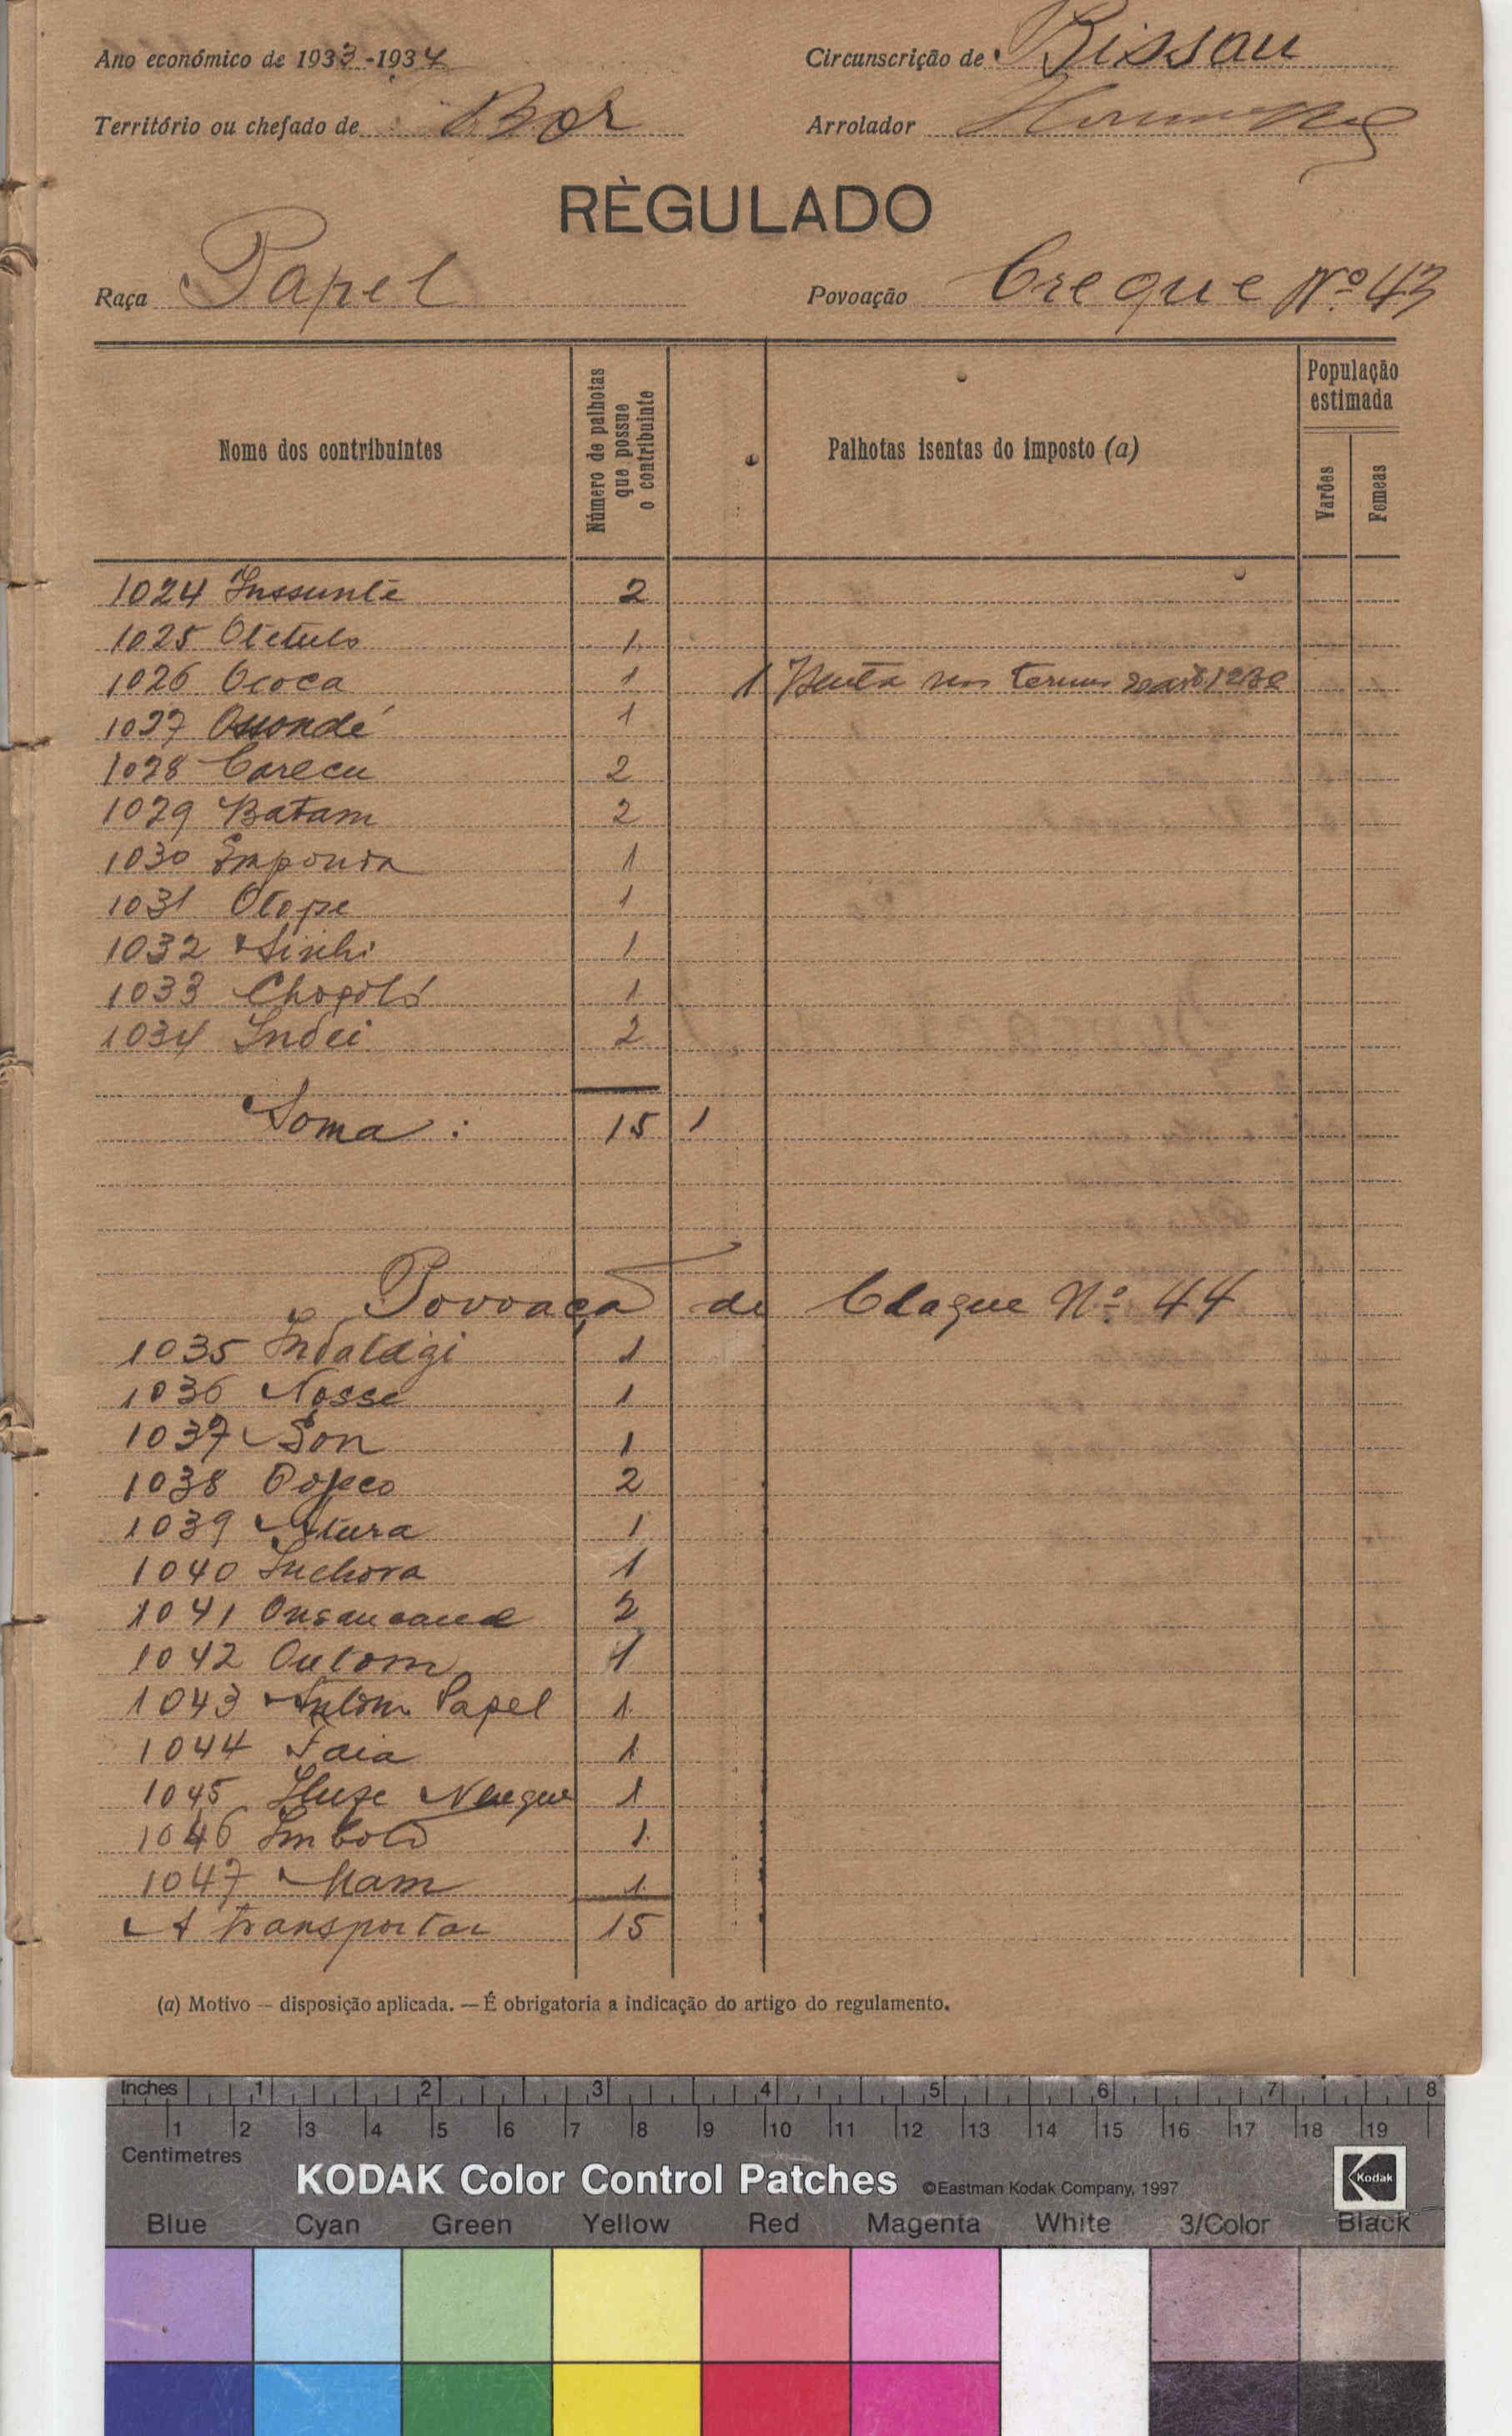 Ano económico de 1933-1934
Circunscrição de Bissau
Território ou chefado de Bor
Arrolador
RÈGULADO
Raça Papel
Povoação Creque Nº 43
Nome dos contribuintes
Número de palhotas que possue o contribuinte
Palhotas isentas do imposto (a)
População estimada
Varões
Femeas
1024 Inssunte 2
1025 Otetulo 1
1026 Ococa 1 1 nos termos
1027 Ossondé 1
1028 Carecu 2
1029 Batam 2
1030 1
1031 Otope 1
1032 1
1033 1
1034 Indei 2
Soma : 15 1
Povoaçã de Claque Nº 44
1035 Indatági 1
1036 Nosse 1
1037 Son 1
1038 2
1039 Atura 1
1040 Inchora 1
1041 2
1042 Outom 1
1043 Papel 1
1044 Faia 1
1045 1
1046 Imbotó 1
1047 Mam 1
A transportar 15
(a) Motivo — disposição aplicada. — É obrigatoria a indicação do artigo do regulamento.
Inches 1 2 3 4 5 6 7 8
1 2 3 4 5 6 7 8 9 10 11 12 13 14 15 16 17 18 19
Centimetres
KODAK Color Control Patches ©Eastman Kodak Company, 1997 Kodak
Blue Cyan Green Yellow Red Magenta White 3/Color Black